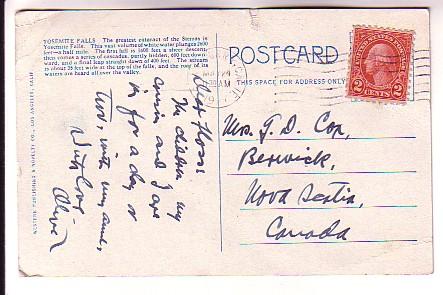 YOSEMITE FALLS. The greatest cataract of the Sierras is
Yosemite Falls. This vast volume of white water plunges 2600
feet—a half mile. The first fall is 1600 feet a sheer descent,
then comes a series of cascades, partly hidden, 600 feet down-
ward, and a final leap straight down of 400 feet. The stream
is about 35 feet wide at the top of the falls, and the roar of its
waters are heard all over the valley.
POSTCARD
THIS SPACE FOR ADDRESS ONLY
UNITED STATES POSTAGE
2 CENTS 2
WESTERN PUBLISHING & NOVELTY CO., LOS ANGELES, CALIF.
Dear Floss:
The children my
cousin and I are
in for a day or
two, with my aunt,
With love—
Mrs. J. D. Cox,
Berwick,
Nova Scotia,
Canada